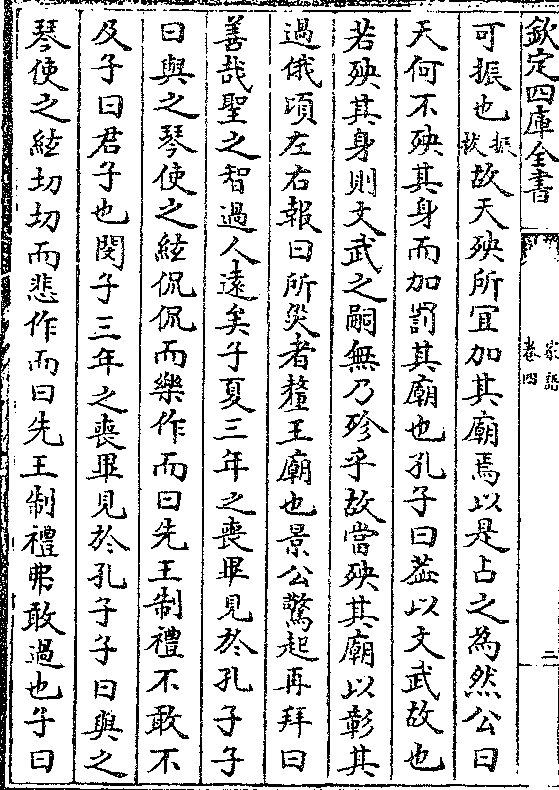 欽定四庫全書
家語
卷四
二
可振也振救故天殃所宜加其廟焉以是占之為然公曰
天何不殃其身而加罰其廟也孔子曰葢以文武故也
若殃其身則文武之嗣無乃殄乎故當殃其廟以彰其
過俄頃左右報曰所災者釐王廟也景公驚起再拜曰
善哉聖之智過人遠矣子夏三年之喪畢見於孔子子
曰與之琴使之絃侃侃而樂作而曰先王制禮不敢不
及子曰君子也閔子三年之喪畢見於孔子子曰與之
琴使之絃切切而悲作而曰先王制禮弗敢過也子曰